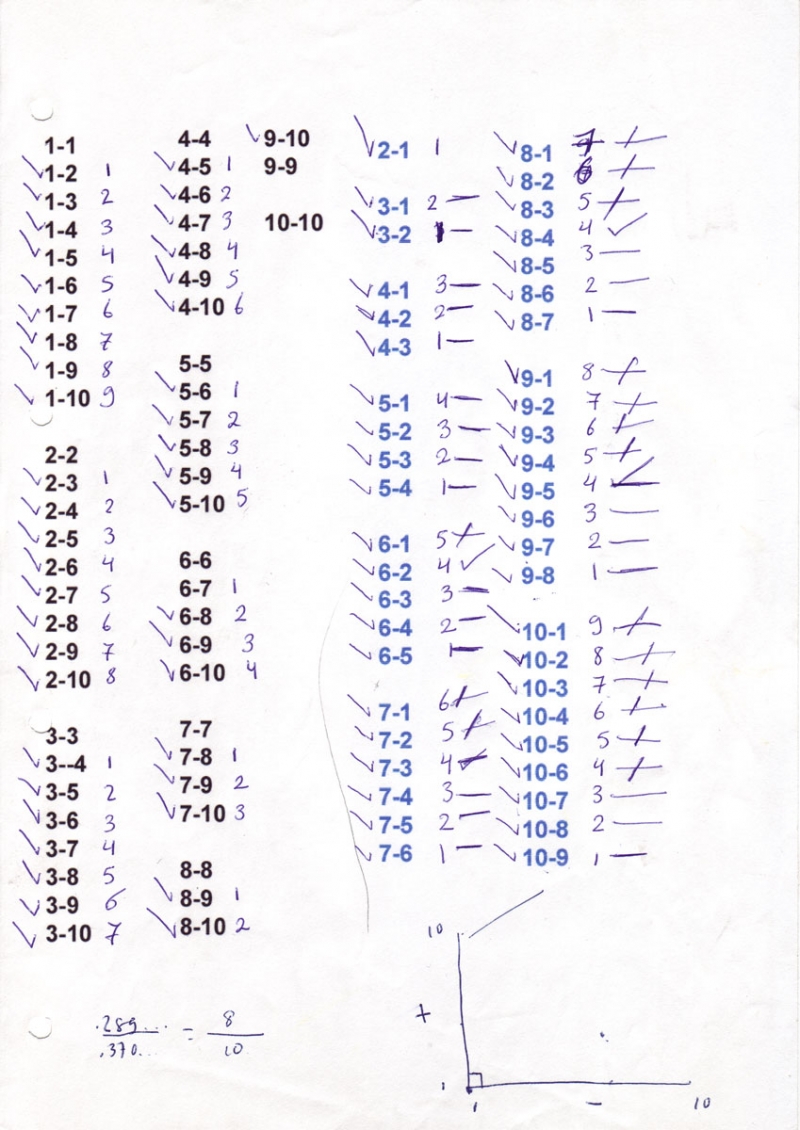 1-1
1-2 1
1-3 2
1-4 3
1-5 4
1-6 5
1-7 6
1-8 7
1-9 8
1-10 9
2-2
2-3 1
2-4 2
2-5 3
2-6 4
2-7 5
2-8 6
2-9 7
2-10 8
3-3
3--4 1
3-5 2
3-6 3
3-7 4
3-8 5
3-9 6
3-10 7
4-4
4-5 1
4-6 2
4-7 3
4-8 4
4-9 5
4-10 6
5-5
5-6 1
5-7 2
5-8 3
5-9 4
5-10 5
6-6
6-7 1
6-8 2
6-9 3
6-10 4
7-7
7-8 1
7-9 2
7-10 3
8-8
8-9 1
8-10 2
9-10
9-9
10-10
2-1 1
3-1 2 —
3-2 1 —
4-1 3 —
4-2 2 —
4-3 1 —
5-1 4 —
5-2 3 —
5-3 2 —
5-4 1 —
6-1 5 +
6-2 4 ✓
6-3 3 —
6-4 2 —
6-5 1 —
7-1 6 +
7-2 5 +
7-3 4 ✓
7-4 3 —
7-5 2 —
7-6 1 —
8-1 7 +
8-2 6 +
8-3 5 +
8-4 4 ✓
8-5 3 —
8-6 2 —
8-7 1 —
9-1 8 +
9-2 7 +
9-3 6 +
9-4 5 +
9-5 4 ✓
9-6 3 —
9-7 2 —
9-8 1 —
10-1 9 +
10-2 8 +
10-3 7 +
10-4 6 +
10-5 5 +
10-6 4 +
10-7 3 —
10-8 2 —
10-9 1 —
.289... = 8
.370... 10
10
+
1
1 — 10